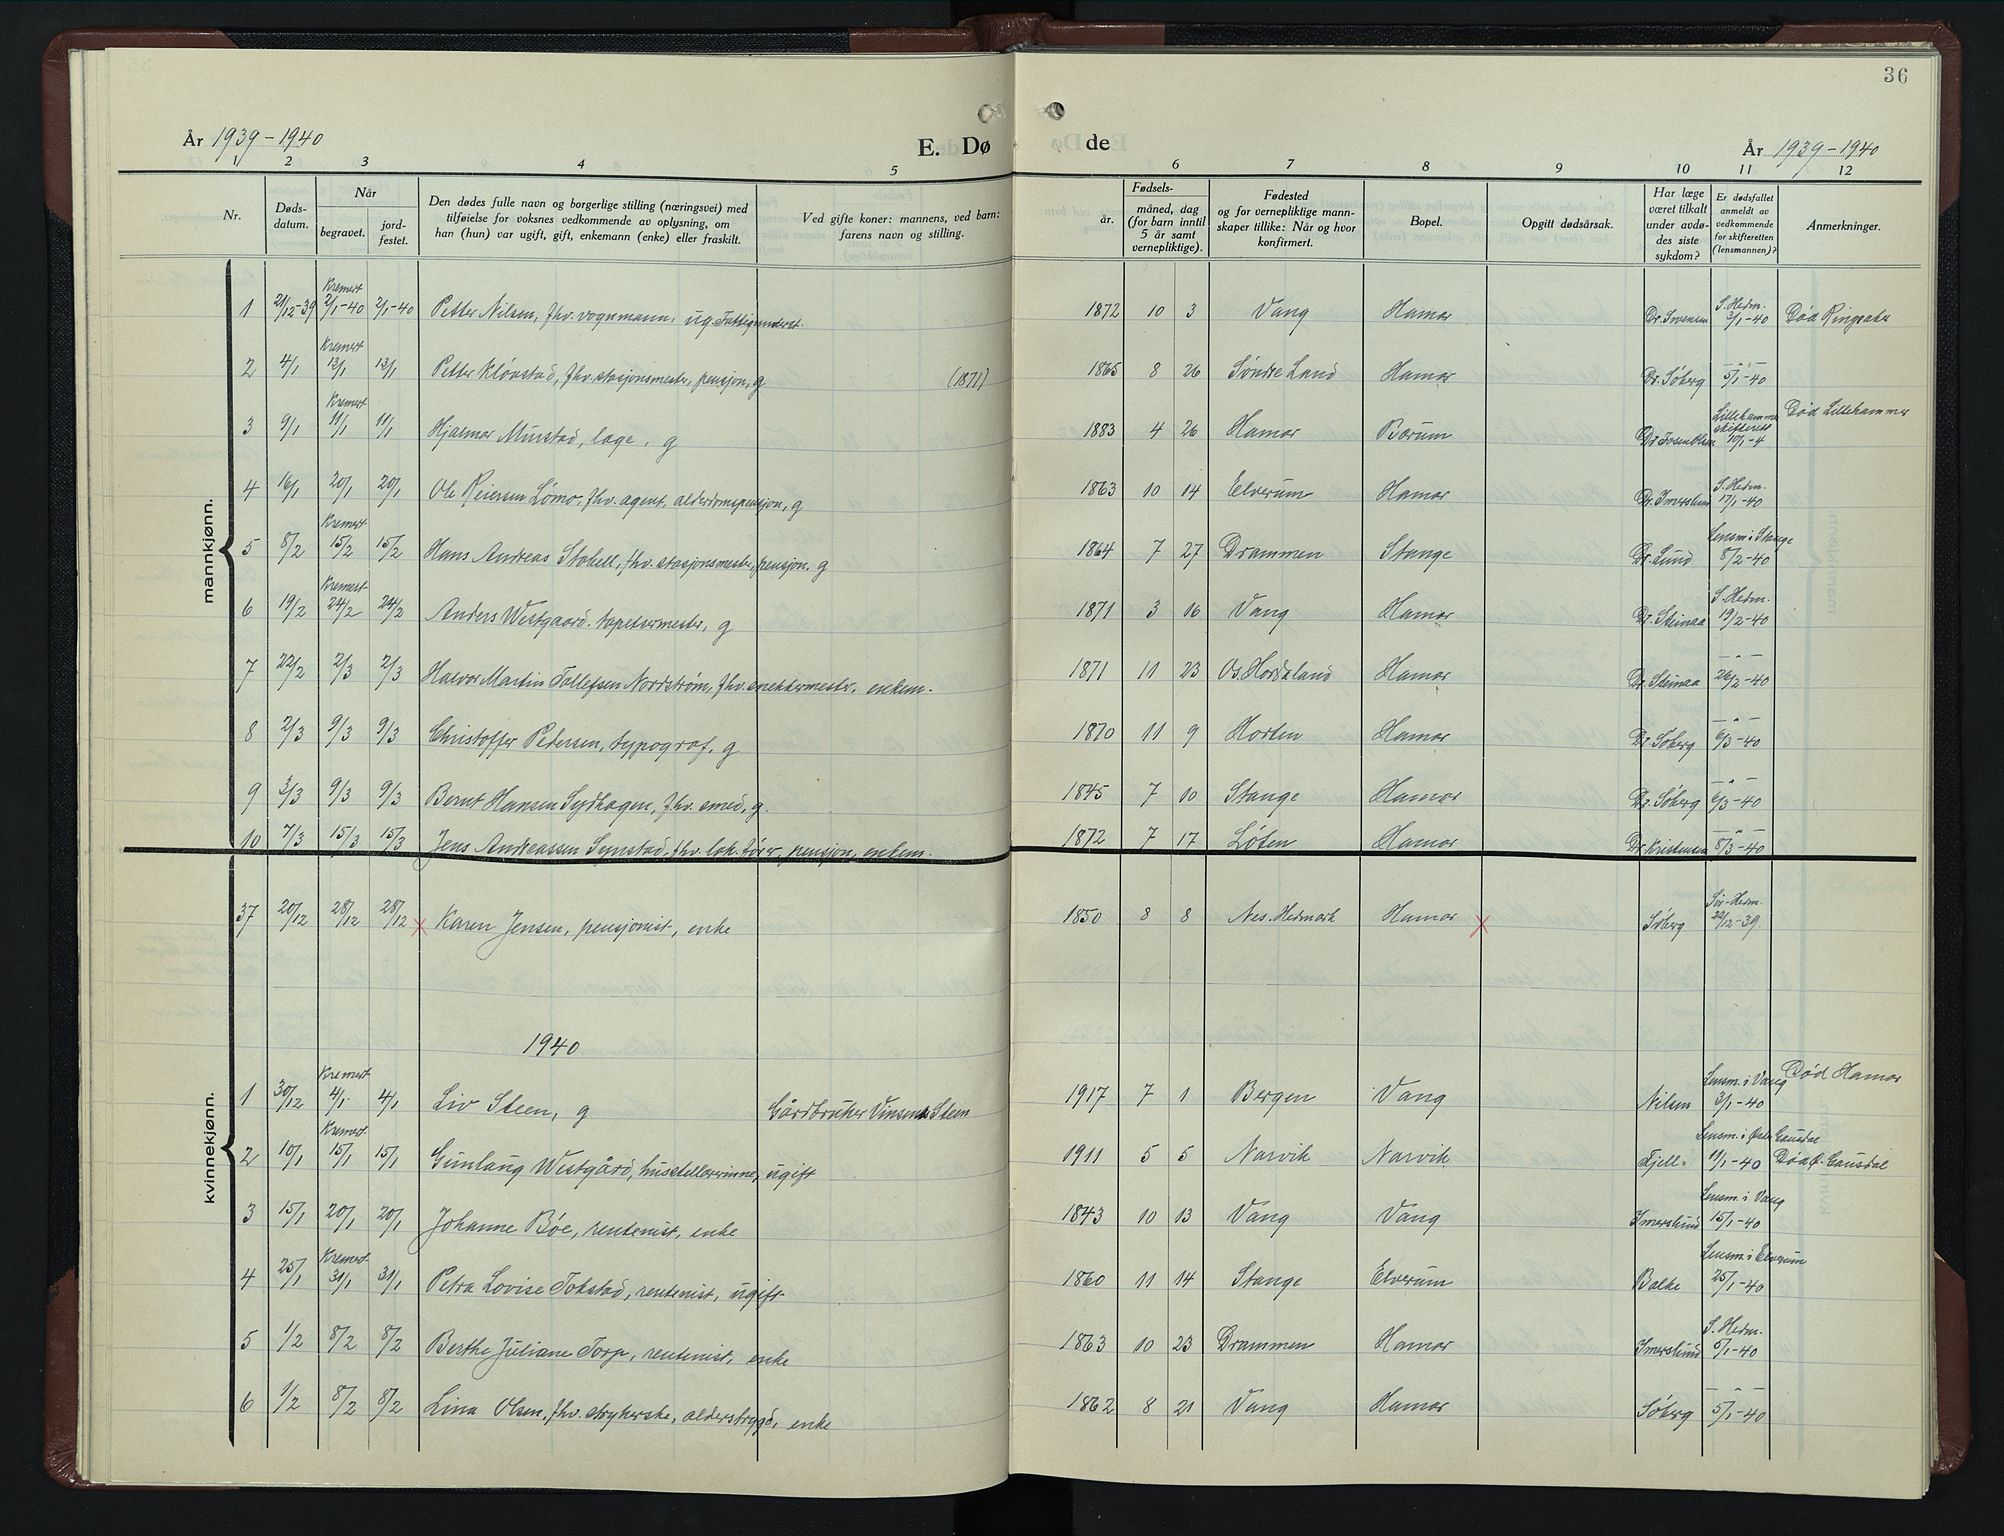 36
År 1939-1940 E. Dø de År 1939-1940
1 2 3 4 5 6 7 8 9 10 11 12
Nr. Døds-datum. Når begravet. jord-festet. Den dødes fulle navn og borgerlige stilling (næringsvei) med tilføielse for voksnes vedkommende av oplysning, om han (hun) var ugift, gift, enkemann (enke) eller fraskilt. Ved gifte koner: mannens, ved barn: farens navn og stilling. Fødsels- år. måned, dag (for barn inntil 5 år samt vernepliktige). Fødested og for vernepliktige mannskaper tillike: Når og hvor konfirmert. Bopel. Opgitt dødsårsak. Har læge været tilkalt under avdødes siste sykdom? Er dødsfallet anmeldt av vedkommende for skifteretten (lensmannen)? Anmerkninger.
mannkjønn.
1 21/12-39 Kremert 2/1-40 2/1-40 Petter Nilsen, fhv. vognmann, ug 1872 10 3 Vang Hamar S. Hedm. 3/1-40 Død Ringsaker
2 4/1 Kremert 13/1 13/1 Petter Kløvstad, fhv. stasjonsmester, pensjon, g (1871) 1865 8 26 Søndre Land Hamar Dr. Søberg -"- 5/1-40
3 9/1 Kremert 11/1 11/1 Hjalmar Mustad, læge, g 1883 4 26 Hamar Bærum Lillehammer skifterett 10/1-4 Død Lillehammer
4 16/1 20/1 20/1 Ole Reiersen Lømo, fhv. agent, alderdomspensjon, g 1863 10 14 Elverum Hamar Dr. Imerslund S. Hedm. 17/1-40
5 8/2 Kremert 15/2 15/2 Hans Andreas Stabell, fhv. stasjonsmester, pensjon, g 1864 7 27 Drammen Stange Dr. Lund Lensm. i Stange 8/2-40
6 19/2 Kremert 24/2 24/2 Anders Westgaard, tapetsermester, g 1871 3 16 Vang Hamar Dr. Steinaa S. Hedm. 19/2-40
7 22/2 2/3 2/3 Halvor Martin Tollefsen Nordstrøm, fhv. snekkermester, enkem. 1871 11 23 Os. Hordaland Hamar Dr. Steinaa -"- 26/2-40
8 2/3 9/3 9/3 Christoffer Pedersen, typograf, g 1870 11 9 Horten Hamar Dr. Søberg -"- 6/3-40
9 3/3 9/3 9/3 Bernt Hansen Sydhagen, fhv. smed, g. 1845 7 10 Stange Hamar Dr. Søberg -"- 6/3-40
10 7/3 15/3 15/3 Jens Andreassen Synstad, fhv. lok. fører, pensjon, enkem. 1872 7 17 Løten Hamar Dr. Kristensen -"- 8/3-40
kvinnekjønn.
37 20/12 28/12 28/12 x Karen Jensen, pensjonist, enke 1850 8 8 Nes. Hedmark Hamar x Søberg Sør-Hedm. 22/12-39.
1940
1 30/12 Kremert 4/1 4/1 Liv Steen, g Gårdbruker Steen 1917 7 1 Bergen Vang Nilsen Lensm. i Vang 3/1-40 Død Hamar
2 10/1 Kremert 15/1 15/1 Gunlaug Westgård, husstellærerinne, ugift 1911 5 5 Narvik Narvik Fjell. Lensm. i Østre Gausdal 11/1-40 Død Ø. Gausdal
3 15/1 20/1 20/1 Johanne Bøe, rentenist, enke 1843 10 13 Vang Vang Imerslund Lensm. i Vang 15/1-40
4 25/1 Kremert 31/1 31/1 Petra Lovise Tokstad, rentenist, ugift 1860 11 14 Stange Elverum Balke Lensm. i Elverum 25/1-40
5 1/2 8/2 8/2 Berthe Juliane Torp, rentenist, enke 1863 10 23 Drammen Hamar Imerslund S. Hedm. 5/1-40
6 1/2 8/2 8/2 Lina Olsen, fhv. strykerske, alderstrygd, enke 1862 8 21 Vang Hamar Søberg -"- 5/1-40